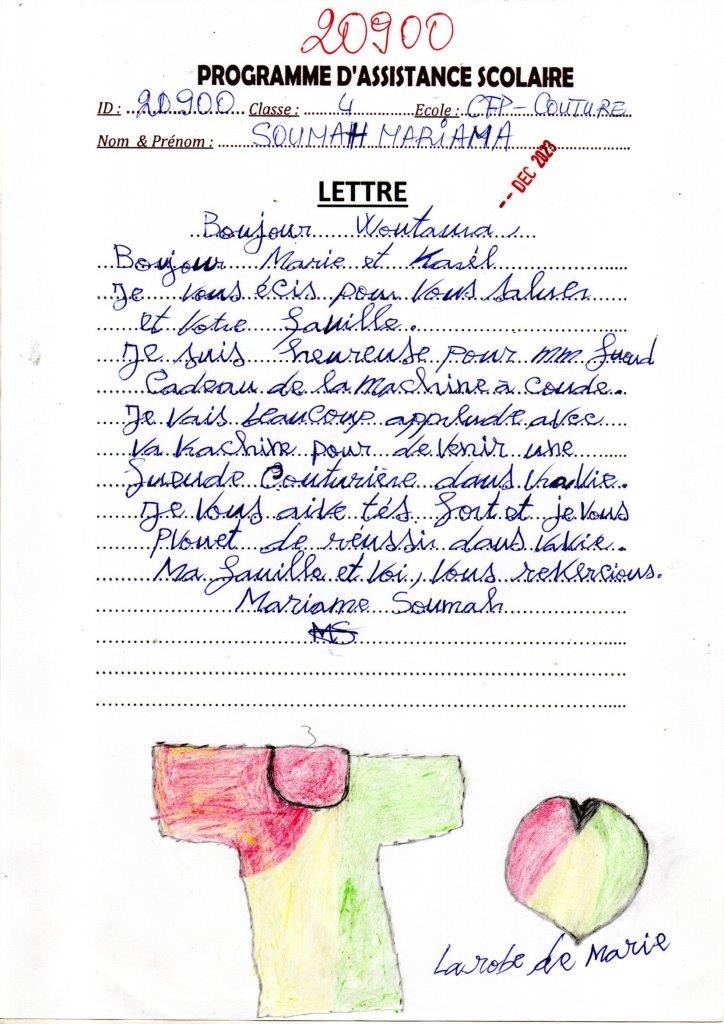 20900
PROGRAMME D'ASSISTANCE SCOLAIRE
ID : 20900 Classe : 4 Ecole : CFP-COUTURE
Nom & Prénom : SOUMAH MARIAMA
-- DEC 2023
LETTRE
Boujour Woutama,
Boujour Marie et Kaël
Je vous écis pour vous saluer
et votre fauille.
Je suis heureuse pour mm gueud
Cadeau de la machine a coude.
Je vais beaucoup applude avec
va kachine pour devenir une
gueude Couturière daus vie.
Je vous aive tés fort et je vous
Plouet de réussir daus vie.
Ma fauille et voi, vous rekercious.
Mariame Soumah
MS
La robe de Marie